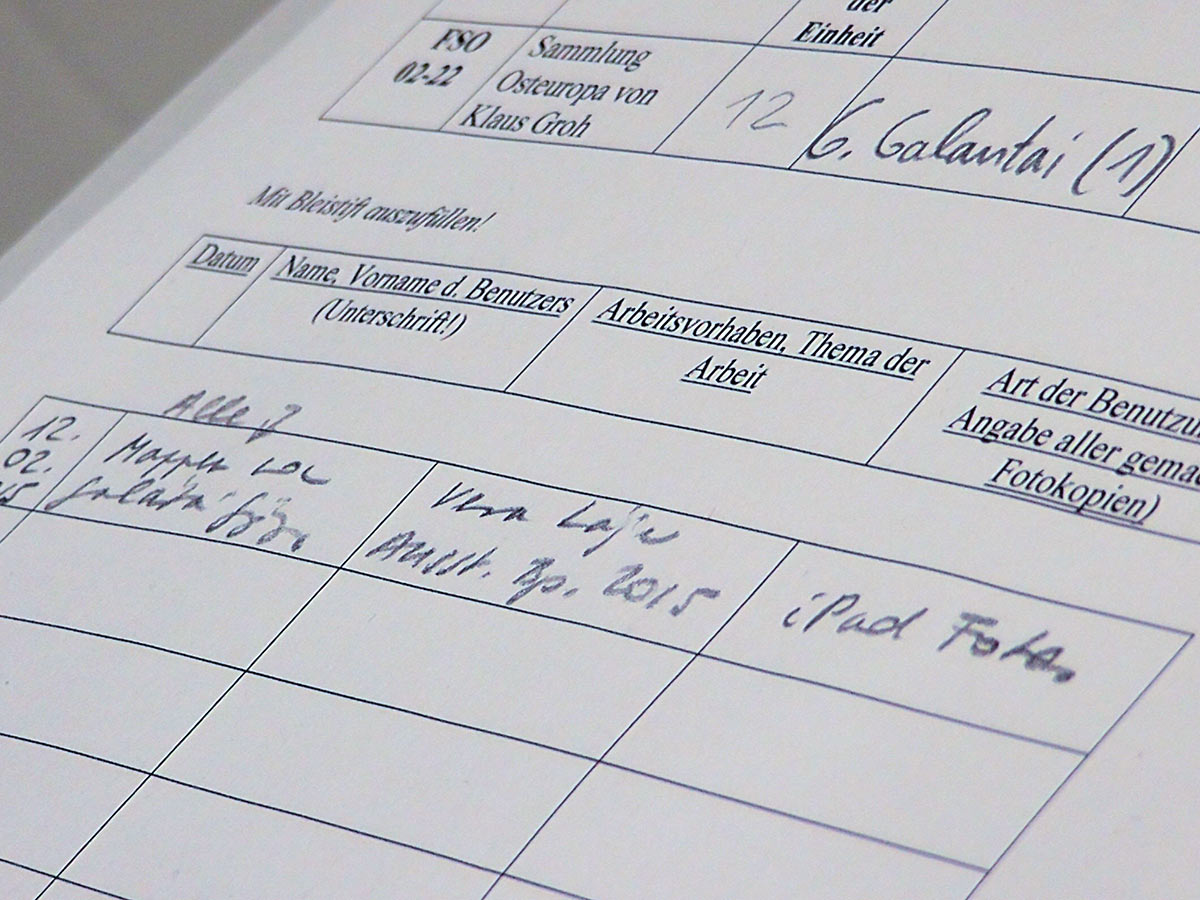 der
Einheit
FSO
02-22
Sammlung
Osteuropa von
Klaus Groh
12
G. Galantai (1)
Mit Bleistift auszufüllen!
Datum
Name, Vorname d. Benutzers
(Unterschrift!)
Arbeitsvorhaben, Thema der
Arbeit
Art der Benutzu
Angabe aller gemac
Fotokopien)
12.
02.
Alle 3
Mappen von
Vera
Ausst. Bp. 2015
iPad Fotos